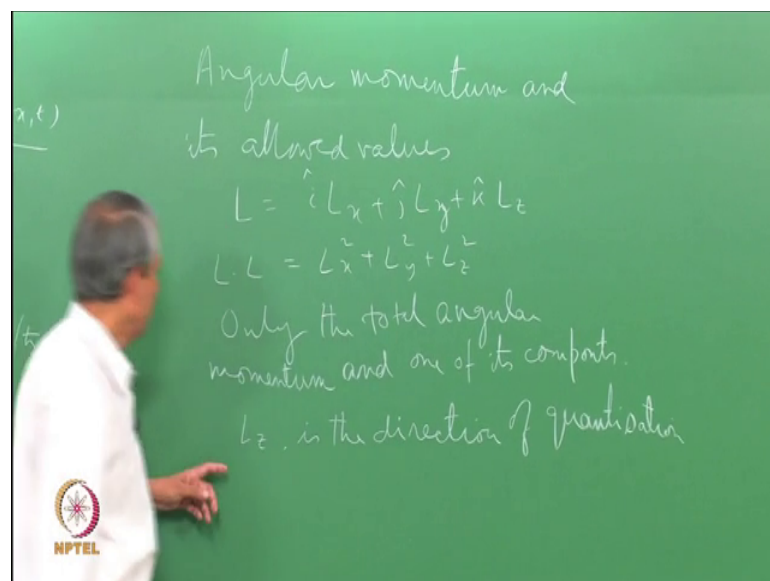 Angular momentum and
its allowed values
x,t)
L = îLx + ĵLy + k̂Lz
L.L = Lx² + Ly² + Lz²
Only the total angular
momentum and one of its componts.
/ħ
Lz. is the direction of quantisation
NPTEL